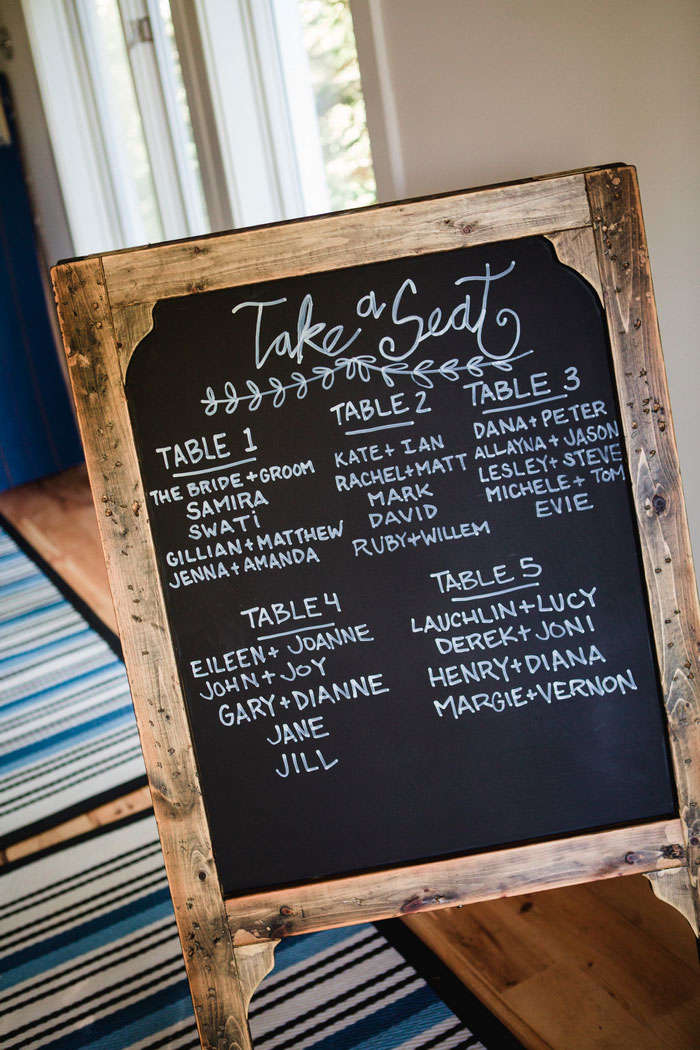 Take a Seat
TABLE 1
THE BRIDE + GROOM
SAMIRA
SWATi
GILLIAN + MATTHEW
JENNA + AMANDA
TABLE 2
KATE + IAN
RACHEL + MATT
MARK
DAVID
RUBY + WILLEM
TABLE 3
DANA + PETER
ALLAYNA + JASON
LESLEY + STEVE
MICHELE + TOM
EVIE
TABLE 4
EILEEN + JOANNE
JOHN + JOY
GARY + DIANNE
JANE
JILL
TABLE 5
LAUCHLIN + LUCY
DEREK + JONI
HENRY + DIANA
MARGIE + VERNON